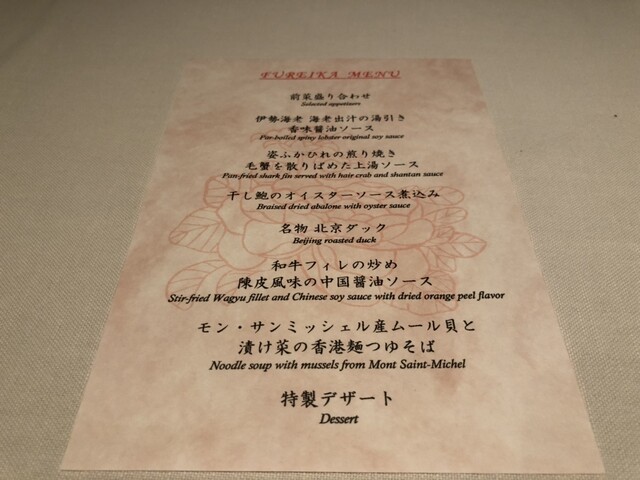 FUREIKA MENU
前菜盛り合わせ
Selected appetizers
伊勢海老 海老出汁の湯引き
香味醤油ソース
Par-boiled spiny lobster original soy sauce
姿ふかひれの煎り焼き
毛蟹を散りばめた上湯ソース
Pan-fried shark fin served with hair crab and shantan sauce
干し鮑のオイスターソース煮込み
Braised dried abalone with oyster sauce
名物 北京ダック
Beijing roasted duck
和牛フィレの炒め
陳皮風味の中国醤油ソース
Stir-fried Wagyu fillet and Chinese soy sauce with dried orange peel flavor
モン・サンミッシェル産ムール貝と
漬け菜の香港麺つゆそば
Noodle soup with mussels from Mont Saint-Michel
特製デザート
Dessert